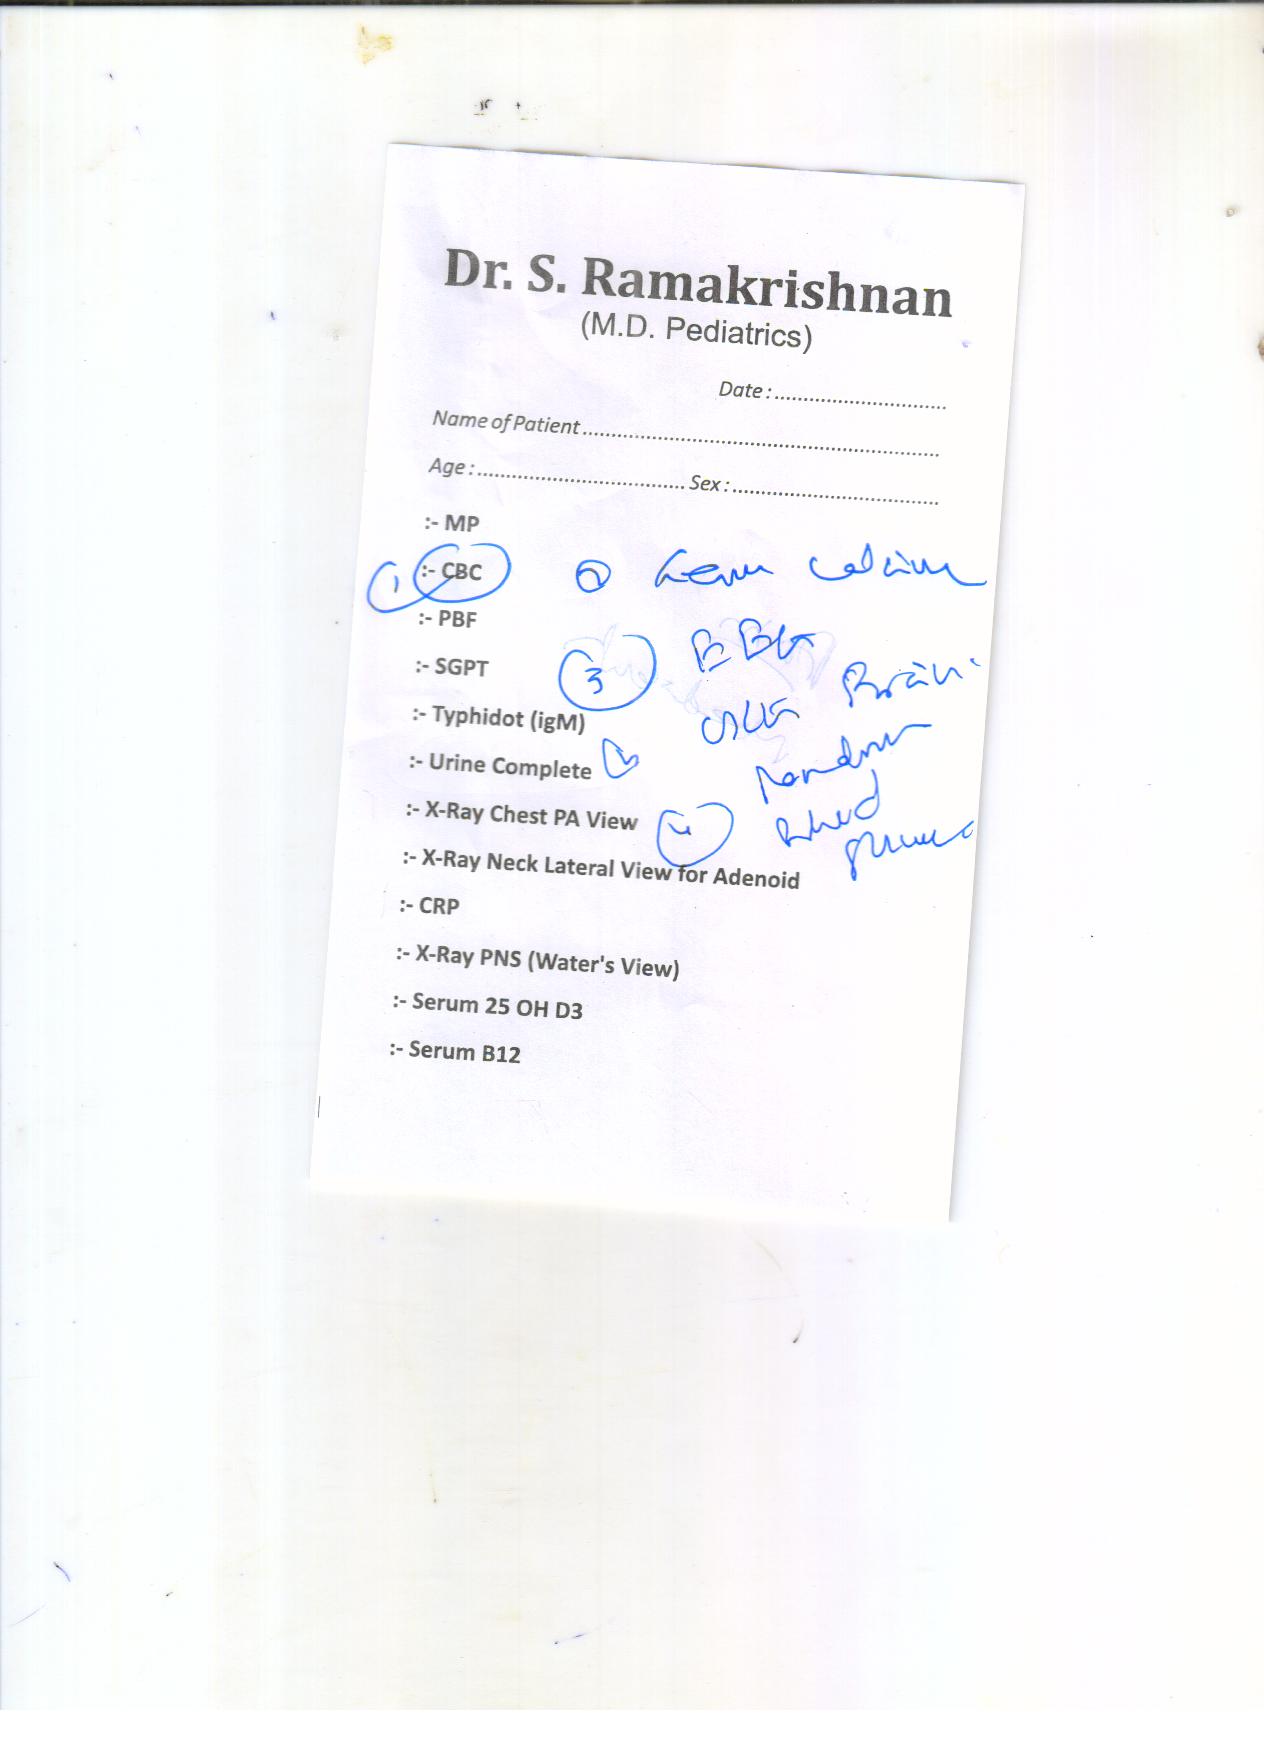 Dr. S. Ramakrishnan
(M.D. Pediatrics)
Date :..............................
Name of Patient..............................................................
Age :.................................... Sex :....................................
:- MP
1 :- CBC
2 Serum Calcium
:- PBF
3 EEG
:- SGPT
Brain
:- Typhidot (igM)
:- Urine Complete
Random
:- X-Ray Chest PA View
4 Blood
:- X-Ray Neck Lateral View for Adenoid
:- CRP
:- X-Ray PNS (Water's View)
:- Serum 25 OH D3
:- Serum B12